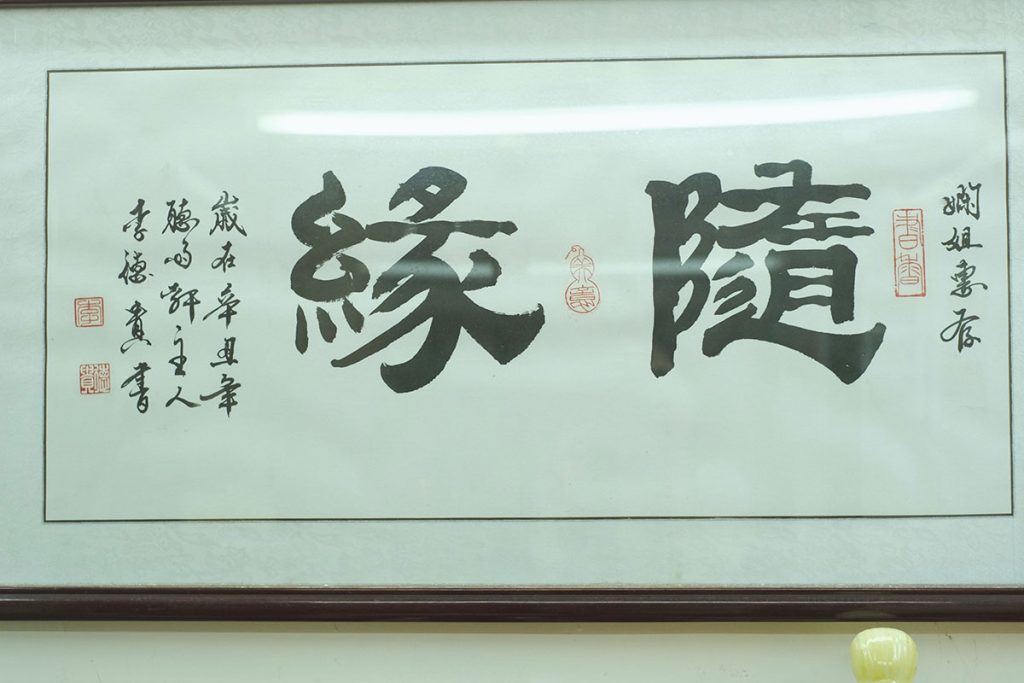 書香
嫻姐惠存
隨緣
歲在辛丑年
聽雨軒主人
李德貴書
李
德貴